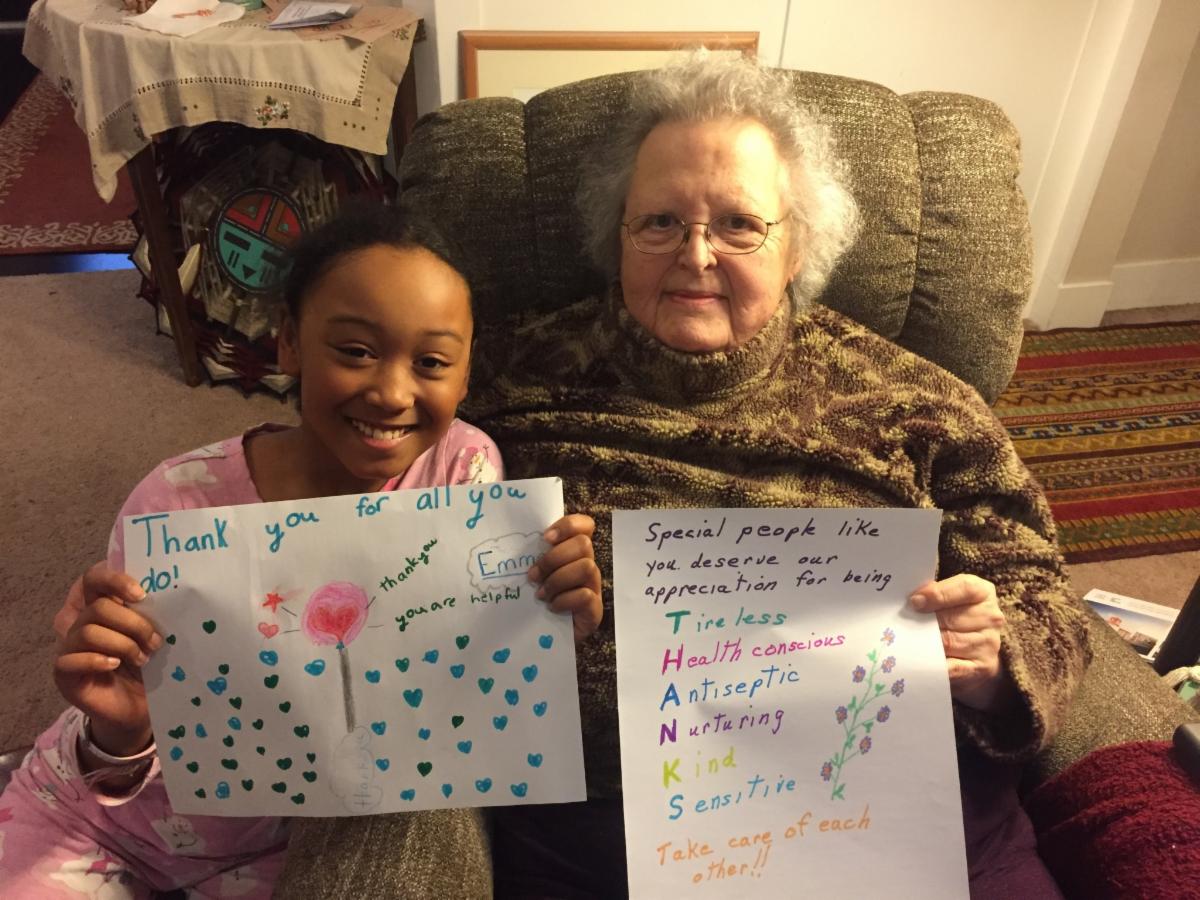 Thank you for all you
do!
thankyou
Emm
you are helpful
thanks
Special people like
you deserve our
appreciation for being
Tireless
Health conscious
Antiseptic
Nurturing
Kind
Sensitive
Take care of each
other!!